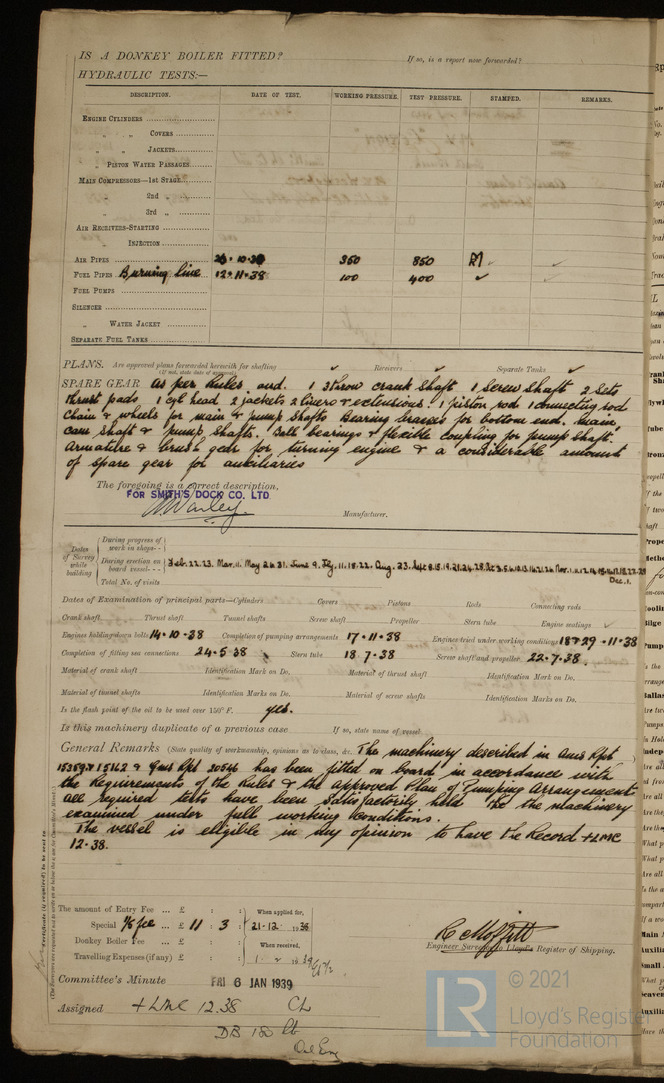 IS A DONKEY BOILER FITTED? If so, is a report now forwarded?
HYDRAULIC TESTS:—
DESCRIPTION. DATE OF TEST. WORKING PRESSURE. TEST PRESSURE. STAMPED. REMARKS.
ENGINE CYLINDERS
„ „ COVERS
„ „ JACKETS
„ PISTON WATER PASSAGES
MAIN COMPRESSORS—1st STAGE
„ 2nd „
„ 3rd „
AIR RECEIVERS-STARTING
„ INJECTION
AIR PIPES 350 850
FUEL PIPES Burning line 12.11.38 100 400 ✓
FUEL PUMPS
SILENCER
„ WATER JACKET
SEPARATE FUEL TANKS
PLANS. Are approved plans forwarded herewith for shafting Receivers Separate Tanks
(If not, state date of approval)
SPARE GEAR As per Rules, and. 1 3 throw crank shaft 1 Screw shaft 2 Sets
thrust pads. 1 cyl head 2 jackets 2 liners & extensions. 1 piston rod 1 connecting rod
chain & wheels for main & pump shafts Bearing brasses for bottom end, main,
cam shaft & pump shafts. Ball bearings & flexible coupling for pump shaft.
Armature & brush gear for turning engine & a considerable amount
of spare gear for auxiliaries
The foregoing is a correct description,
FOR SMITH'S DOCK CO. LTD.
Manufacturer.
Dates of Survey while building
During progress of work in shops - -
During erection on board vessel - - - Feb. 22. 23. Mar. 11. May 26. 31. June 9. July. 11. 18. 22. Aug. 23.
Dec. 1.
Total No. of visits
Dates of Examination of principal parts—Cylinders Covers Pistons Rods Connecting rods
Crank shaft Thrust shaft Tunnel shafts Screw shaft Propeller Stern tube Engine seatings ✓
Engines holding down bolts 14.10.38 Completion of pumping arrangements 17.11.38 Engines tried under working conditions 18 & 29.11.38
Completion of fitting sea connections 24.5.38 Stern tube 18.7.38 Screw shaft and propeller 22.7.38.
Material of crank shaft Identification Mark on Do. Material of thrust shaft Identification Mark on Do.
Material of tunnel shafts Identification Marks on Do. Material of screw shafts Identification Marks on Do.
Is the flash point of the oil to be used over 150° F. yes.
Is this machinery duplicate of a previous case If so, state name of vessel
General Remarks (State quality of workmanship, opinions as to class, &c. The machinery described in Ams Rpt
15359 & 15162 & Gms Rpt 20546 has been fitted on board in accordance with
the Requirements of the Rules & the approved Plan of Pumping Arrangements
all required tests have been satisfactorily held & the machinery
examined under full working conditions.
The vessel is eligible in my opinion to have the Record +LMC
12.38.
The amount of Entry Fee ... £ : : When applied for,
Special ... £ 11 : 3 : 21.12.1938
Donkey Boiler Fee ... £ : : When received,
Travelling Expenses (if any) £ : :
Engineer Surveyor to Lloyd's Register of Shipping.
Committee's Minute FRI 6 JAN 1939
Assigned +LMC 12.38 CL
DB 180 lb
Oil Eng
© 2021
LR
Lloyd's Register
Foundation